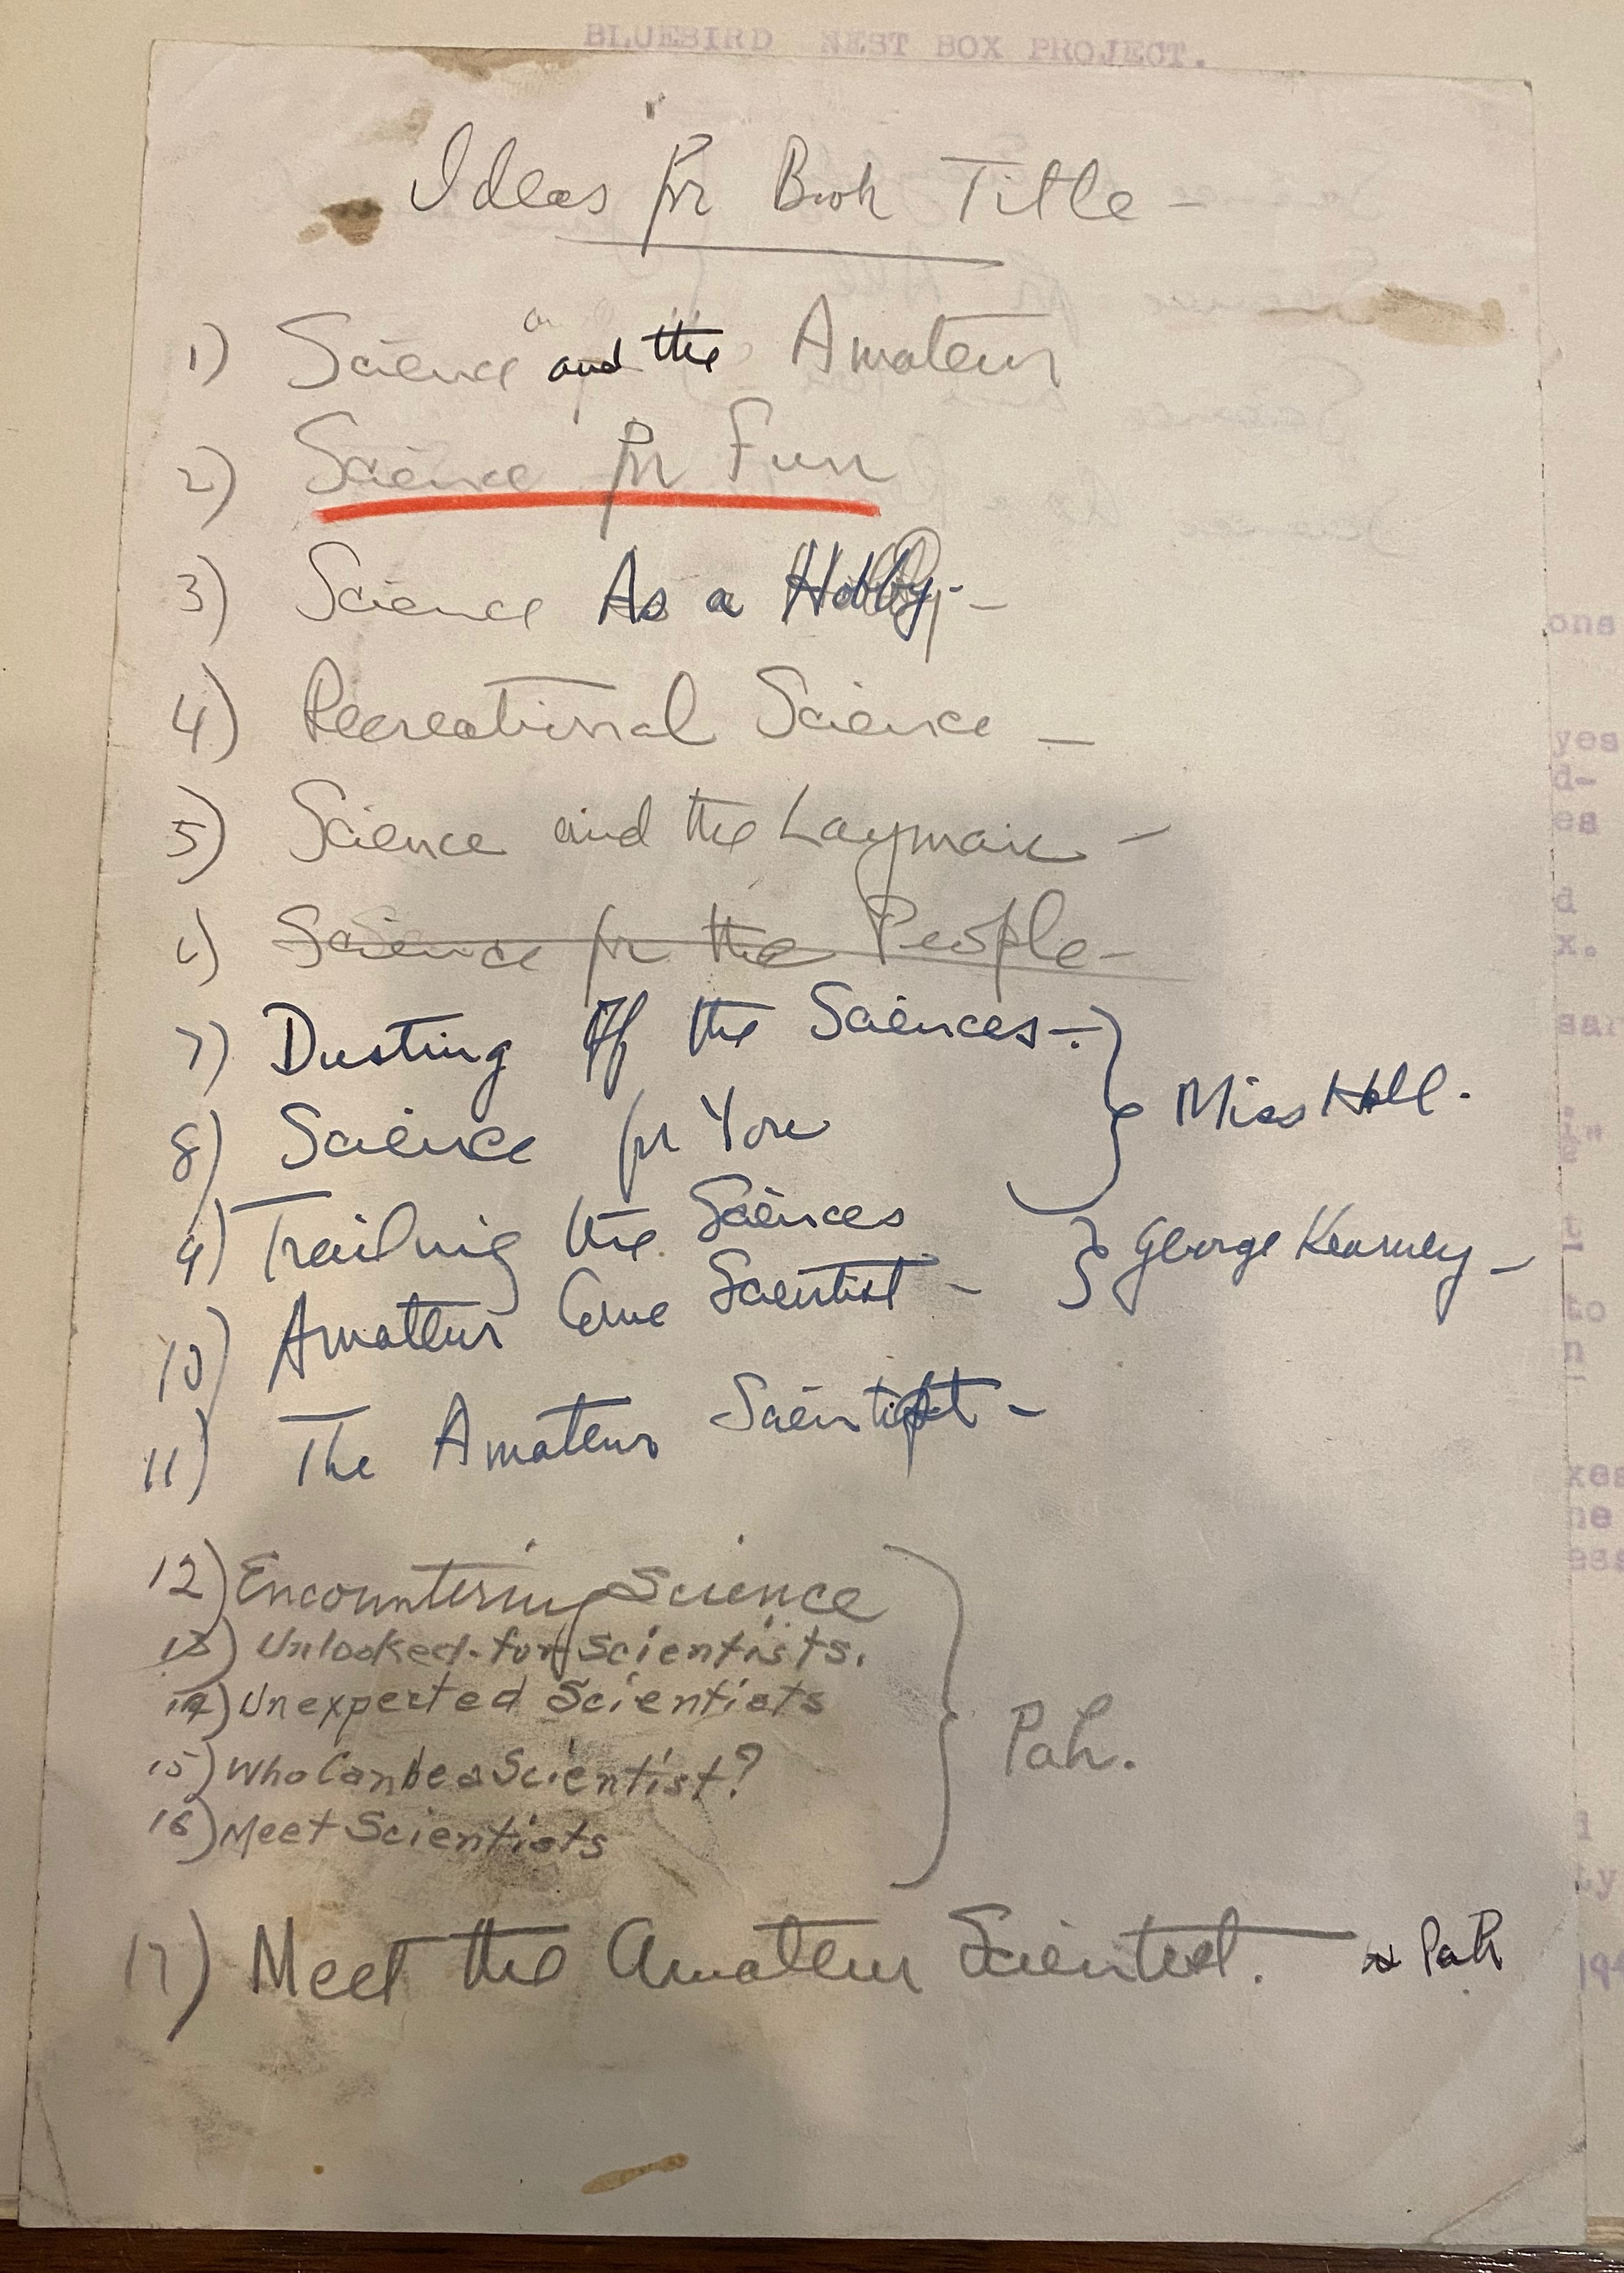 BLUEBIRD NEST BOX PROJECT.
Ideas for Book Title -
1) Science and the Amateur
2) Science for Fun
3) Science As a Hobby -
4) Recreational Science -
5) Science and the Layman -
6) Science for the People -
7) Dusting Off the Sciences -
8) Science for You
Miss Holl.
9) Trailing the Sciences
10) Amateur Scientist -
George Kearney -
11) The Amateur Scientist -
12) Encountering Science
13) Unlooked-for Scientists.
14) Unexpected Scientists
15) Who Can be a Scientist?
16) Meet Scientists
Pah.
17) Meet the Amateur Scientist. Pah
ons
yes
d-
es
d
x.
to
n
xes
ne
ess
ty